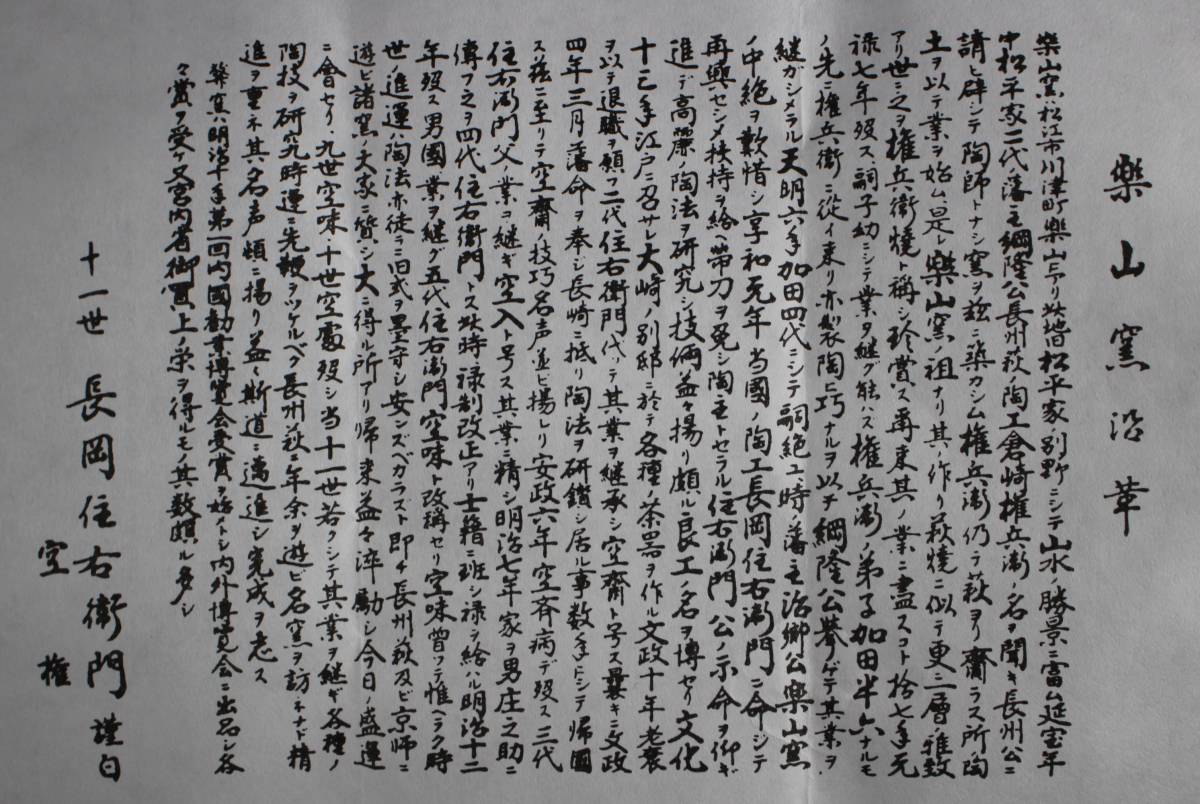 樂山窯沿革
樂山窯ハ松江市川津町樂山ニアリ此地旧松平家ノ別野ニシテ山水ノ勝景ニ富ム延宝年
中松平家二代藩主綱隆公長州萩ノ陶工倉崎権兵衛ノ名ヲ聞キ長州公ニ
請ヒ辟シテ陶師トナシ窯ヲ茲ニ築カシム権兵衛仍テ萩ヨリ齎ラス所陶
土ヲ以テ業ヲ始ム是レ樂山窯ノ祖ナリ其ノ作リ萩焼ニ似テ更ニ一層ノ雅致
アリ世ニ之ヲ権兵衛焼ト稱シ珍賞ス再来其ノ業ニ盡スコト拾七年元
禄七年歿ス嗣子幼ニシテ業ヲ継グ能ハズ権兵衛ノ弟子加田半六ナルモ
ノ先ニ権兵衛ニ從イ来リ亦製陶ニ巧ナルヲ以テ綱隆公挙ゲテ其業ヲ
継ガシメラル天明六年加田四代ニシテ嗣絶ユ時ノ藩主治郷公樂山窯
ノ中絶ヲ歎惜シ享和元年当國ノ陶工長岡住右衛門ニ命シテ
再興セシメ扶持ヲ給ヘ帯刀ヲ免シ陶主トセラル住右衛門公ノ示命ヲ仰ギ
進デ高麗陶法ヲ研究シ技倆益々揚リ頗ル良工ノ名ヲ博セリ文化
十三年江戸ニ召サレ大崎ノ別邸ニ於テ各種ノ茶器ヲ作ル文政十年老衰
ヲ以テ退職ヲ願フ二代住右衛門代テ其業ヲ継承シ空齋ト号ス曩キニ文政
四年三月藩命ヲ奉シ長崎ニ抵リ陶法ヲ研鑽シ居ル事数年ニシテ帰國
ス茲ニ至リテ空齋ノ技巧名声並ヒ揚レリ安政六年空斉病デ歿ス三代
住右衛門父ノ業ヲ継ギ空入ト号ス其ノ業ニ精シ明治七年家ヲ男庄之助ニ
傳フ之ヲ四代住右衛門トス此時禄制改正アリ士籍ニ班シ禄ヲ給ハル明治十二
年歿ス男國業ヲ継グ五代住右衛門空味ト改稱セリ空味曽フテ惟ヘラク時
世ノ進運ハ陶法亦徒ラニ旧式ヲ墨守シ安ンズベカラスト即チ長州萩及ビ京師ニ
遊ビ諸窯ノ大家ニ質シ大ニ得ル所アリ帰来益々淬勵シ今日ノ盛運
ニ會セリ九世空味十世空處歿シ当十一世若クシテ其業ヲ継ギ各種ノ
陶技ヲ研究九時運ニ先鞭ヲツケルベク長州萩ニ年余ヲ遊ビ名窯ヲ訪ネナド精
進ヲ重ネ其名声頓ニ揚リ益々斯道ニ邁進シ完成ヲ志ス
築窯ハ明治十年第一回内國勧業博覧会受賞ヲ始メトシ内外博覧会ニ出品シ各
々賞ヲ受ケ又宮内省御買上ノ栄ヲ得ルモノ其数頗ル多シ
十一世 長岡住右衛門 謹白
空権